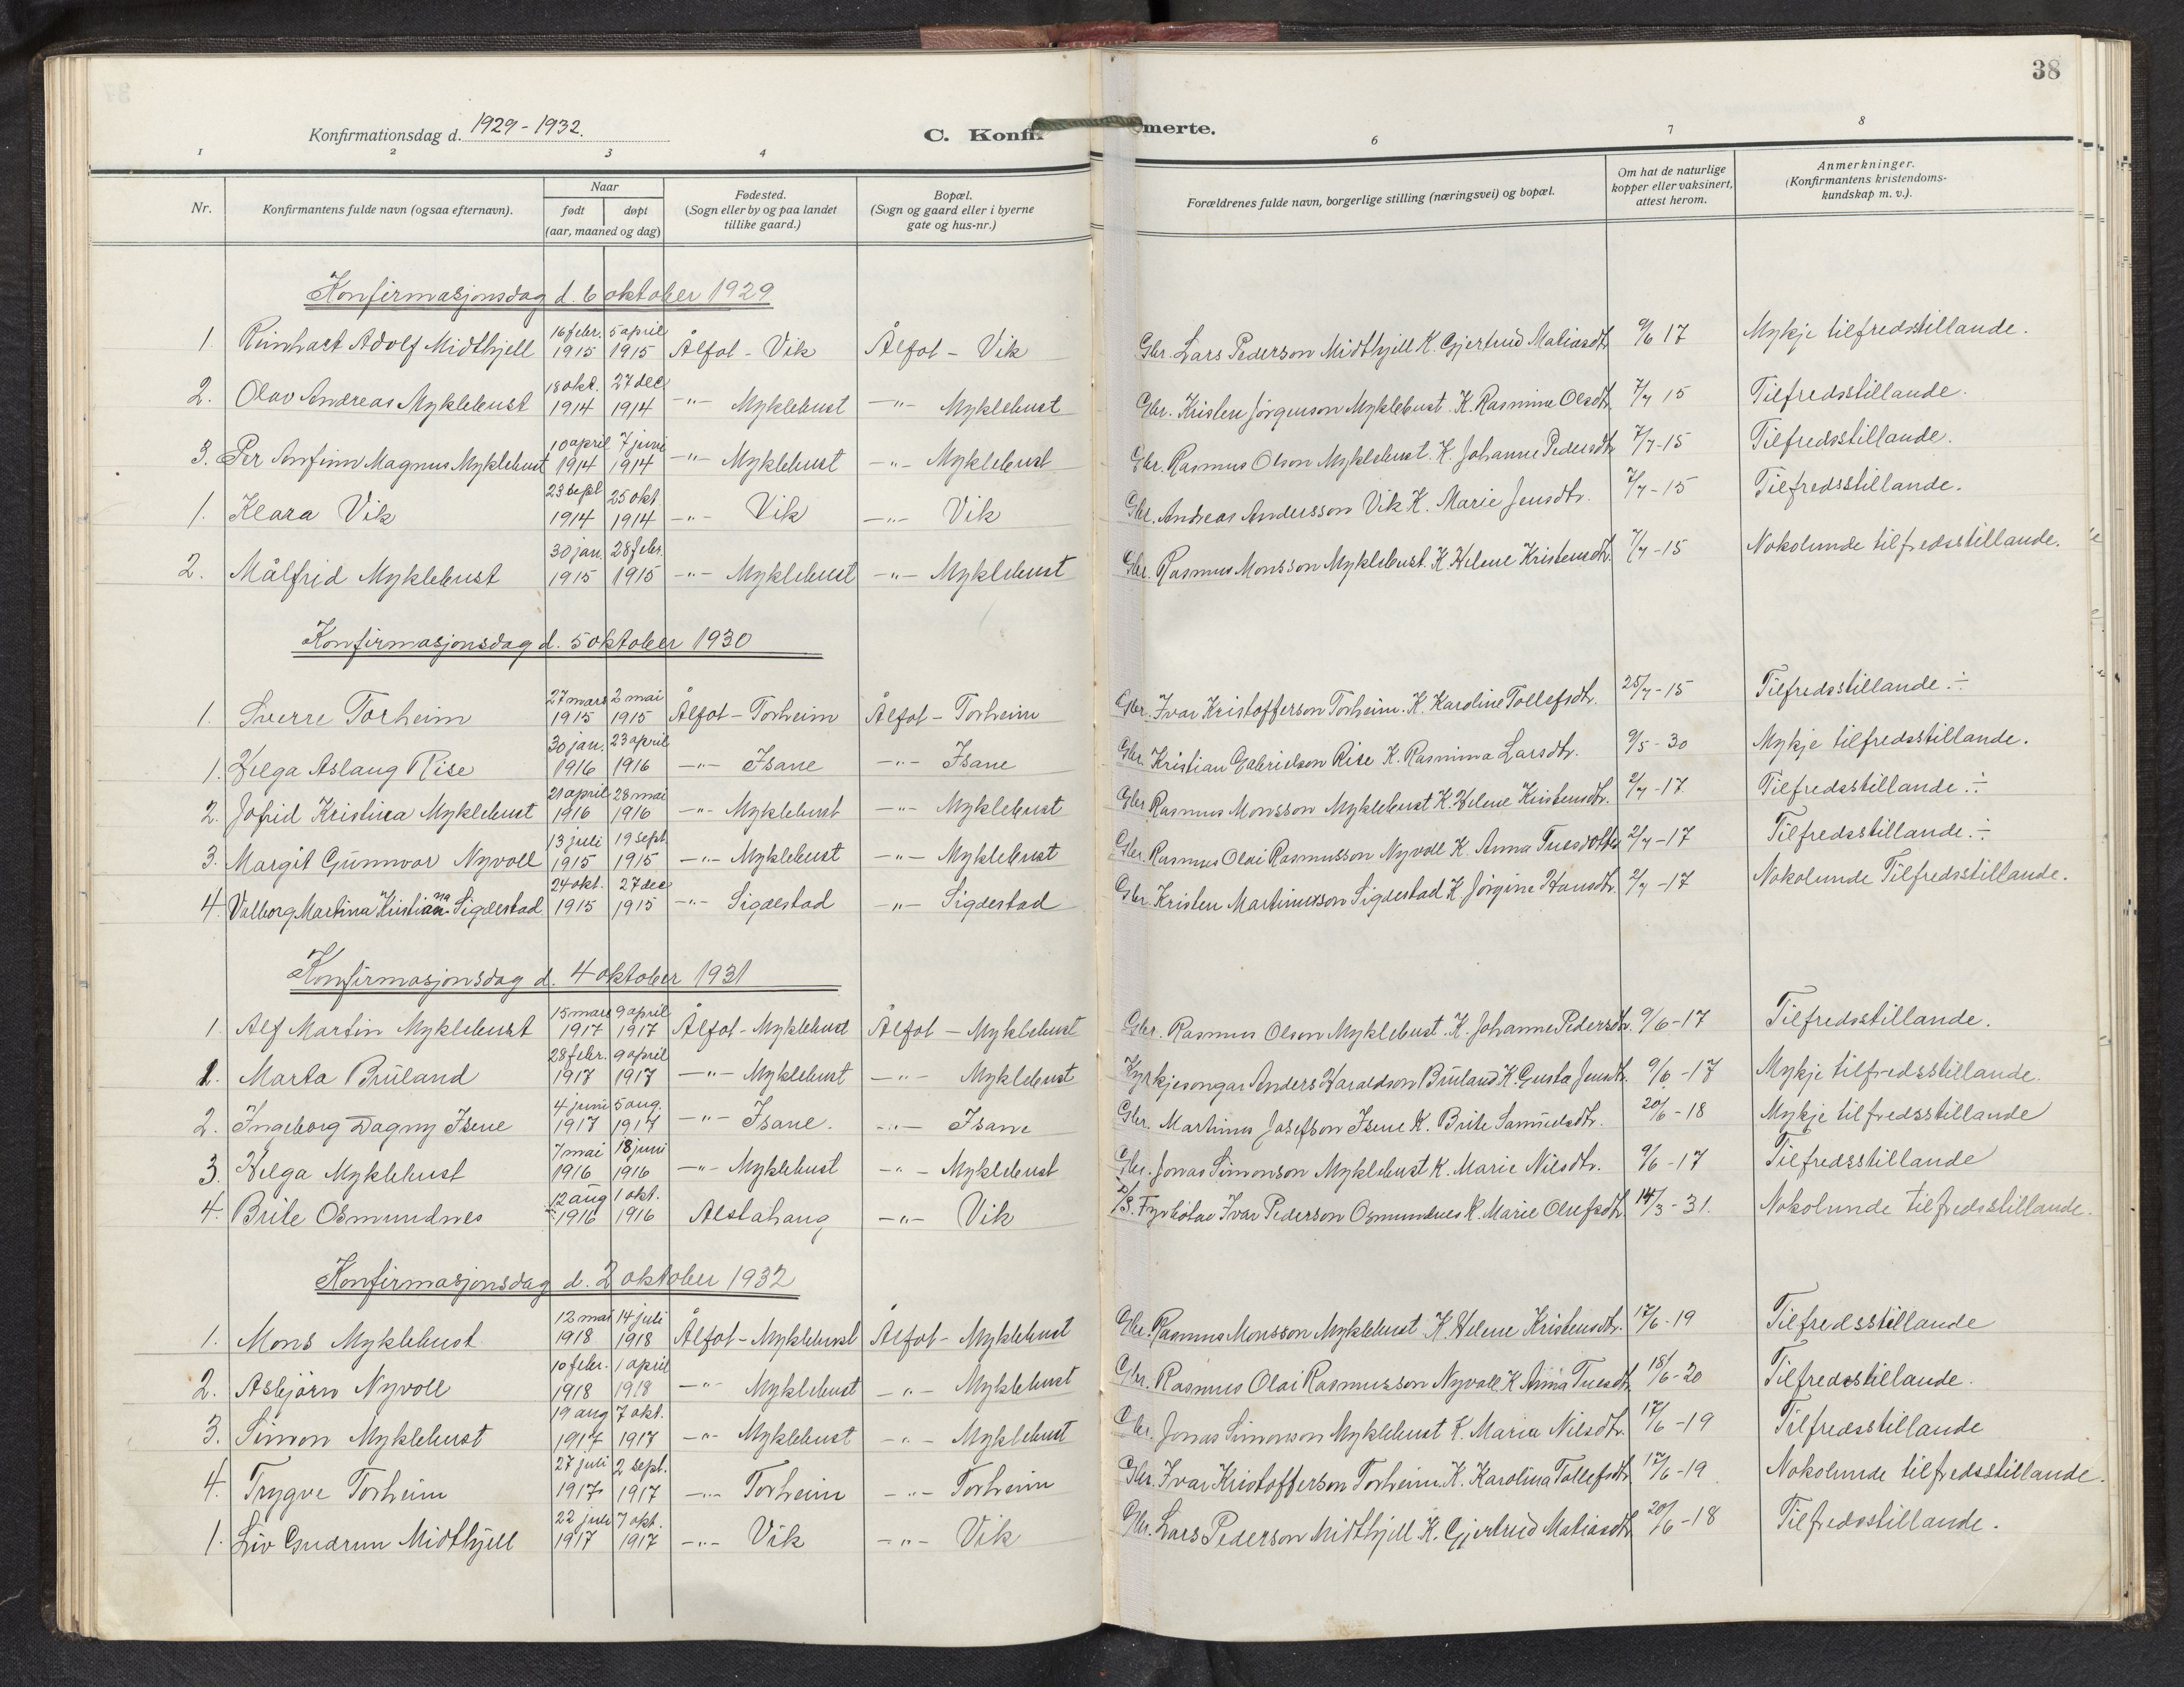 38
Konfirmationsdag d. 1929-1932.
C. Konfir merte.
1 2 3 4 6 7 8
Nr.
Konfirmantens fulde navn (ogsaa efternavn).
Naar
født døpt
(aar, maaned og dag)
Fødested.
(Sogn eller by og paa landet
tillike gaard.)
Bopæl.
(Sogn og gaard eller i byerne
gate og hus-nr.)
Forældrenes fulde navn, borgerlige stilling (næringsvei) og bopæl.
Om hat de naturlige
kopper eller vaksinert,
attest herom.
Anmerkninger.
(Konfirmantens kristendoms-
kundskap m. v.).
Konfirmasjonsdag d. 6 oktober 1929
16 febr. 5 april
1. Reinhart Adolf Midthjell 1915 1915 Ålfot - Vik Ålfot - Vik Gbr. Lars Pederson Midthjell K. Gjertrud Matiasdtr. 9/6 17 Mykje tilfredsstillande.
18 okt. 27 dec
2. Olav Andreas Myklebust 1914 1914 -"- Myklebust -"- Myklebust Gbr. Kristen Jørgenson Myklebust. K. Rasmine Olsdtr. 7/7 15 Tilfredsstillande.
10 april 7 juni
3. Per Arnfinn Magnus Myklebust 1914 1914 -"- Myklebust -"- Myklebust Gbr. Rasmus Olson Myklebust. K. Johanne Pedersdtr. 7/7-15 Tilfredsstillande.
23 sept 25 okt.
1. Klara Vik 1914 1914 -"- Vik -"- Vik Gbr. Andreas Andersson Vik K. Marie Jensdtr. 7/7-15 Tilfredsstillande.
30 jan. 28 febr.
2. Målfrid Myklebust 1915 1915 -"- Myklebust -"- Myklebust Gbr. Rasmus Monsson Myklebust. K. Helene Kristensdtr. 7/7-15 Nokolunde tilfredsstillande.
Konfirmasjonsdag d. 5 oktober 1930
27 mars 2 mai
1. Sverre Torheim 1915 1915 Ålfot - Torheim Ålfot - Torheim Gbr. Ivar Kristofferson Torheim. K. Karoline Tollefsdtr. 25/7-15 Tilfredsstillande ÷
30 jan. 23 april
1. Helga Aslaug Rise 1916 1916 -"- Isane -"- Isane Gbr. Kristian Gabrielson Rise K. Rasmina Larsdtr. 9/5-30 Mykje tilfredsstillande.
21 april 28 mai
2. Jofrid Kristina Myklebust 1916 1916 -"- Myklebust -"- Myklebust Gbr. Rasmus Monsson Myklebust K. Helene Kristensdtr. 2/7-17 Tilfredsstillande ÷
13 juli 19 sept.
3. Margit Gunnvor Nyvoll 1915 1915 -"- Myklebust -"- Myklebust Gbr. Rasmus Olai Rasmusson Nyvoll K. Anna 2/7-17 Tilfredsstillande ÷
24 okt. 27 dec
4. Valborg Martina Kristianna Sigdestad 1915 1915 -"- Sigdestad -"- Sigdestad Gbr. Kristen Martinusson Sigdestad K. Jørgine Hansdtr. 2/7-17 Nokolunde Tilfredsstillande.
Konfirmasjonsdag d. 4 oktober 1931
15 mars 9 april
1. Alf Martin Myklebust 1917 1917 Ålfot - Myklebust Ålfot - Myklebust Gbr. Rasmus Olson Myklebust. K. Johanne Pedersdtr. 9/6-17 Tilfredsstillande.
28 febr. 9 april
1. Marta Bruland 1917 1917 -"- Myklebust -"- Myklebust Kyrkjesongar Anders Haraldson Bruland K. Gusta Jensdtr. 9/6-17 Mykje tilfredsstillande.
4 juni 5 aug.
2. Ingeborg Dagny Isene 1917 1917 -"- Isane. -"- Isane Gbr. Martinus Josefson Isene K. Brite Samuelsdtr. 20/6-18 Mykje tilfredsstillande
7 mai 18 juni
3. Helga Myklebust 1916 1916 -"- Myklebust -"- Myklebust Gbr. Jonas Simonson Myklebust K. Marie Nilsdtr. 9/6-17 Tilfredsstillande
12 aug 1 okt.
4. Brite Osmundnes 1916 1916 Alstahaug -"- Vik Fyrbøtar Ivar Pederson Osmundnes K. Marie Olufsdtr. 14/3-31. Nokolunde tilfredsstillande.
Konfirmasjonsdag d. 2 oktober 1932
12 mai 14 juli
1. Mons Myklebust 1918 1918 Ålfot - Myklebust Ålfot - Myklebust Gbr. Rasmus Monsson Myklebust K. Helene Kristensdtr. 17/6-19 Tilfredsstillande
10 febr. 1 april
2. Asbjørn Nyvoll 1918 1918 -"- Myklebust -"- Myklebust Gbr. Rasmus Olai Rasmusson Nyvoll K. Anna 18/6-20 Tilfredsstillande.
19 aug 7 okt.
3. Simon Myklebust 1917 1917 -"- Myklebust -"- Myklebust Gbr. Jonas Simonson Myklebust K. Maria Nilsdtr. 17/6-19 Tilfredsstillande
27 juli 2 sept.
4. Trygve Torheim 1917 1917 -"- Torheim -"- Torheim Gbr. Ivar Kristofferson Torheim. K. Karolina Tollefsdtr. 17/6-19 Nokolunde tilfredsstillande.
22 juli 7 okt.
1. Liv Gudrun Midthjell 1917 1917 -"- Vik -"- Vik Gbr. Lars Pederson Midthjell K. Gjertrud Matiasdtr. 20/6-18 Tilfredsstillande.